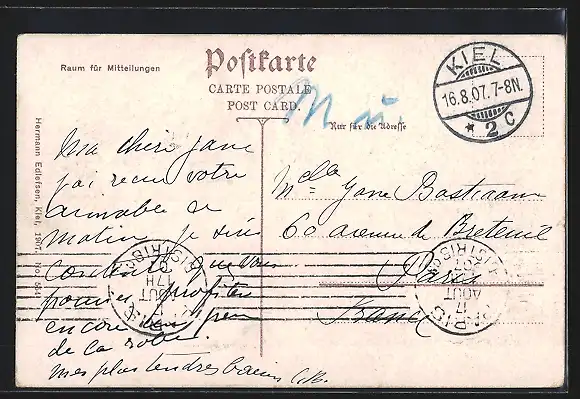 Raum für Mitteilungen
Postkarte
CARTE POSTALE
POST CARD.
Nur für die Adresse
KIEL
16.8.07.7-8N.
* 2 C
Hermann Edlefsen, Kiel, 1907. No.
ma chère Jane
j'ai recu votre
aimable
matin je suis
contente que vous
profiter
encore un peu
de la robe.
mes plus tendres baisers
Melle Jane
60 avenue de Breteuil
Paris
France
PARIS
17
AOUT
17H
PARIS
17
AOUT